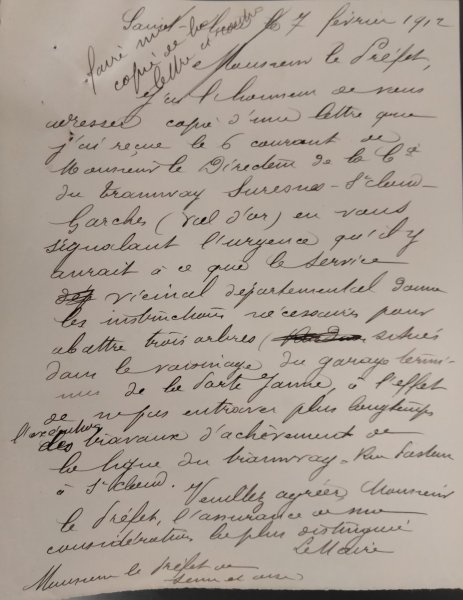 Saint-Cloud le 7 février 1912
faire une
copie de la
lettre
Monsieur le Préfet,
J'ai l'honneur de vous
adresser copie d'une lettre que
j'ai reçue le 6 courant de
Monsieur le Directeur de la Cie
du tramway Suresnes-St Cloud-
Garches (Val d'or) en vous
signalant l'urgence qu'il y
aurait à ce que le service
vicinal départemental donne
les instructions nécessaires pour
abattre trois arbres ( situés
dans le voisinage du garage termi-
nus de la Porte Jaune, à l'effet
de ne pas entraver plus longtemps
l'exécution des travaux d'achèvement de
la ligne du tramway - Rue Pasteur
à St Cloud. Veuillez agréer Monsieur
le Préfet, l'assurance de ma
considération la plus distinguée
Le Maire
Monsieur le Préfet de
Seine et Oise